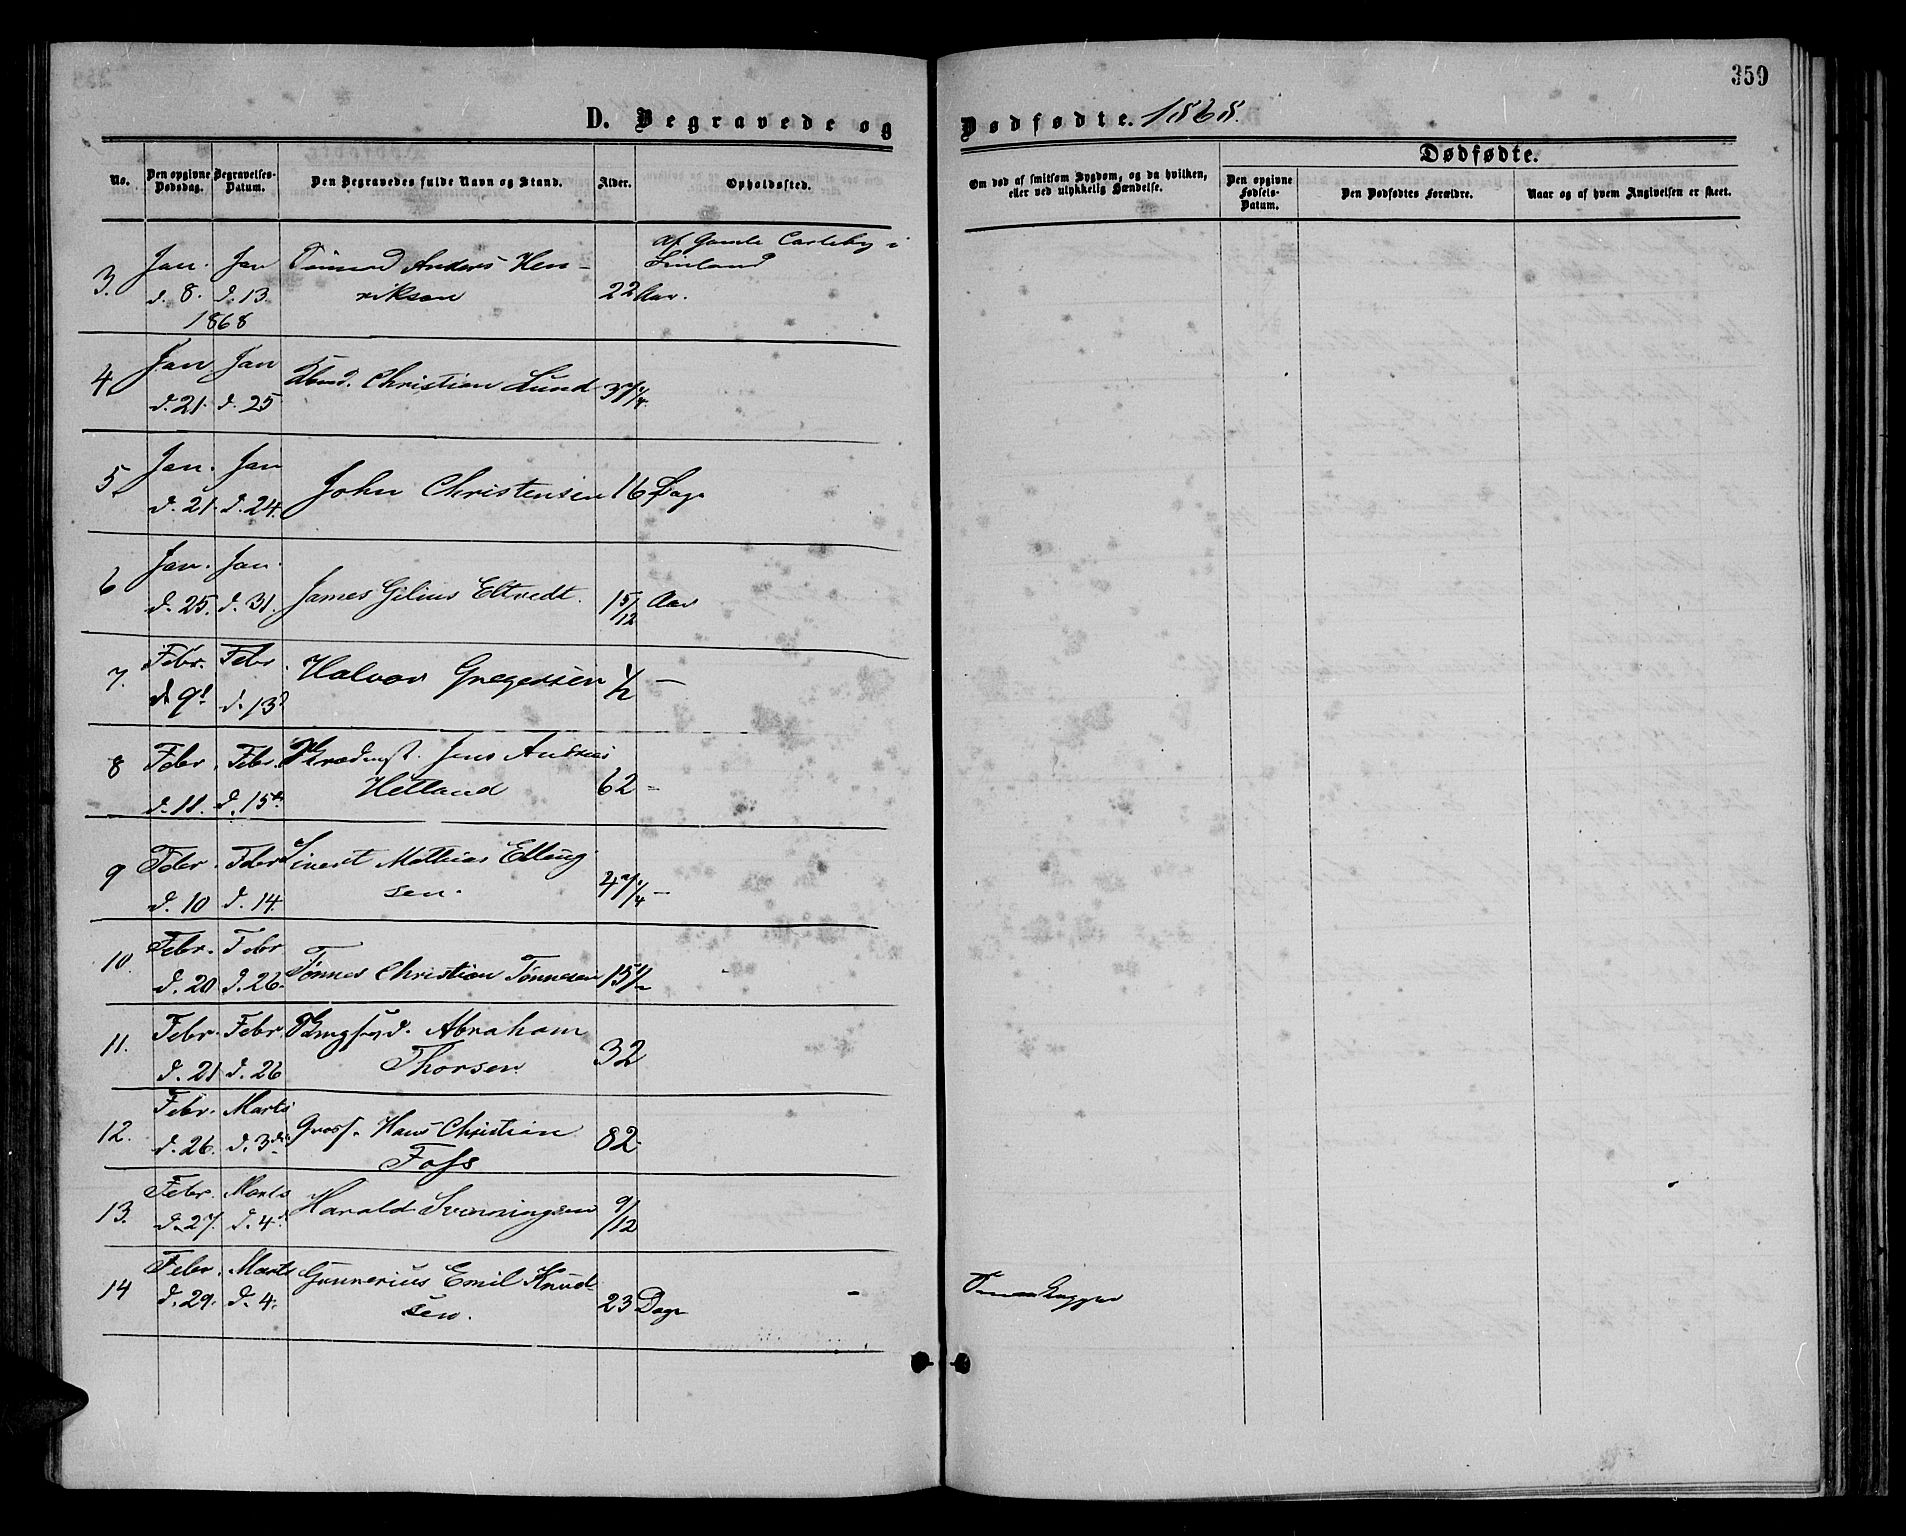 359
D. Begravede og Dødfødte. 1868.
No.
Den opgivne Dødsdag.
Begravelses-Datum.
Den Begravedes fulde Navn og Stand.
Alder.
Opholdssted.
Om død af smitsom Sygdom, og da hvilken, eller ved ulykkelig Hændelse.
Dødfødte.
Den opgivne Fødsels-Datum.
Den Dødfødtes Forældre.
Naar og af hvem Angivelsen er skeet.
af Gamle Carleby i
3. Jan. Jan Tømmd Anders Hen- Finland
d. 8. d. 13. riksen 22 Aar.
1868
4. Jan Jan Christian Lund 3 1/4
d. 21. d. 25
5. Jan. Jan John Christensen 16 Dage
d. 21. d. 24.
6 Jan. Jan. James Gilius Eltvedt. 1 5/12 Aar
d. 25. d. 31.
7. Febr. Febr. Halvor Gregersen 1/2 —
d. 9d d. 13d
8 Febr. Febr. Jens Andreas
d. 11. d. 15de Hetland 62 -
9 Febr. Febr Sivert Mathias Elling
d. 10 d. 14. sen. 4 1/4 —
10. Febr. Febr Tønnes Christian Tønnesen 15 1/2
d. 20 d. 26.
11. Febr. Febr. Abraham
d. 21 d. 26 Thorsen 32
12. Febr. Marts Hans Christian 82-
d. 26. d. 3de Foss
13. Febr. Marts Harald Svenningsen 9/12
d. 27. d. 4d
14 Febr. Marts Gunnerius Emil Knud-
d. 29. d. 4. sen. 23 Dage -